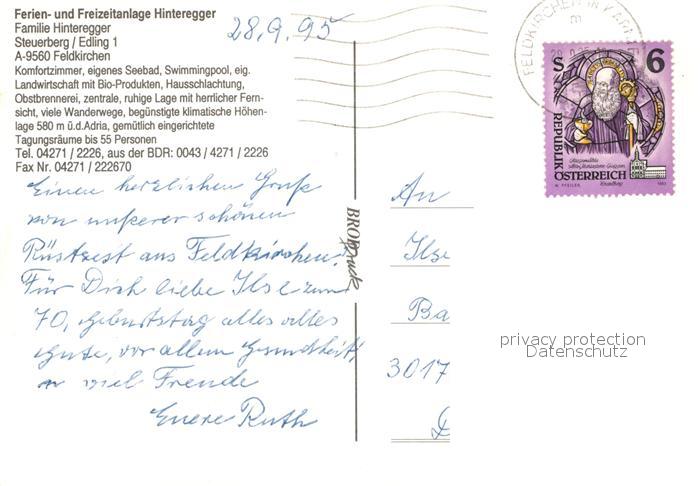 Ferien- und Freizeitanlage Hinteregger
Familie Hinteregger
Steuerberg / Edling 1
A-9560 Feldkirchen
Komfortzimmer, eigenes Seebad, Swimmingpool, eig.
Landwirtschaft mit Bio-Produkten, Hausschlachtung,
Obstbrennerei, zentrale, ruhige Lage mit herrlicher Fern-
sicht, viele Wanderwege, begünstigte klimatische Höhen-
lage 580 m ü.d.Adria, gemütlich eingerichtete
Tagungsräume bis 55 Personen
Tel. 04271 / 2226, aus der BDR: 0043 / 4271 / 2226
Fax Nr. 04271 / 222670
28.9.95
Einen herzlichen Gruß
von unserer schönen
Rüstzeit aus Feldkirchen.
Für Dich liebe Ilse zum
70, Geburtstag alles alles
Gute, vor allem Gesundheit,
u viel Freude
Euere Ruth
BROD druck
FELDKIRCHEN IN KÄRNTEN
S 6
REPUBLIK
ÖSTERREICH
An
Ilse
Ba
3017
D
privacy protection
Datenschutz